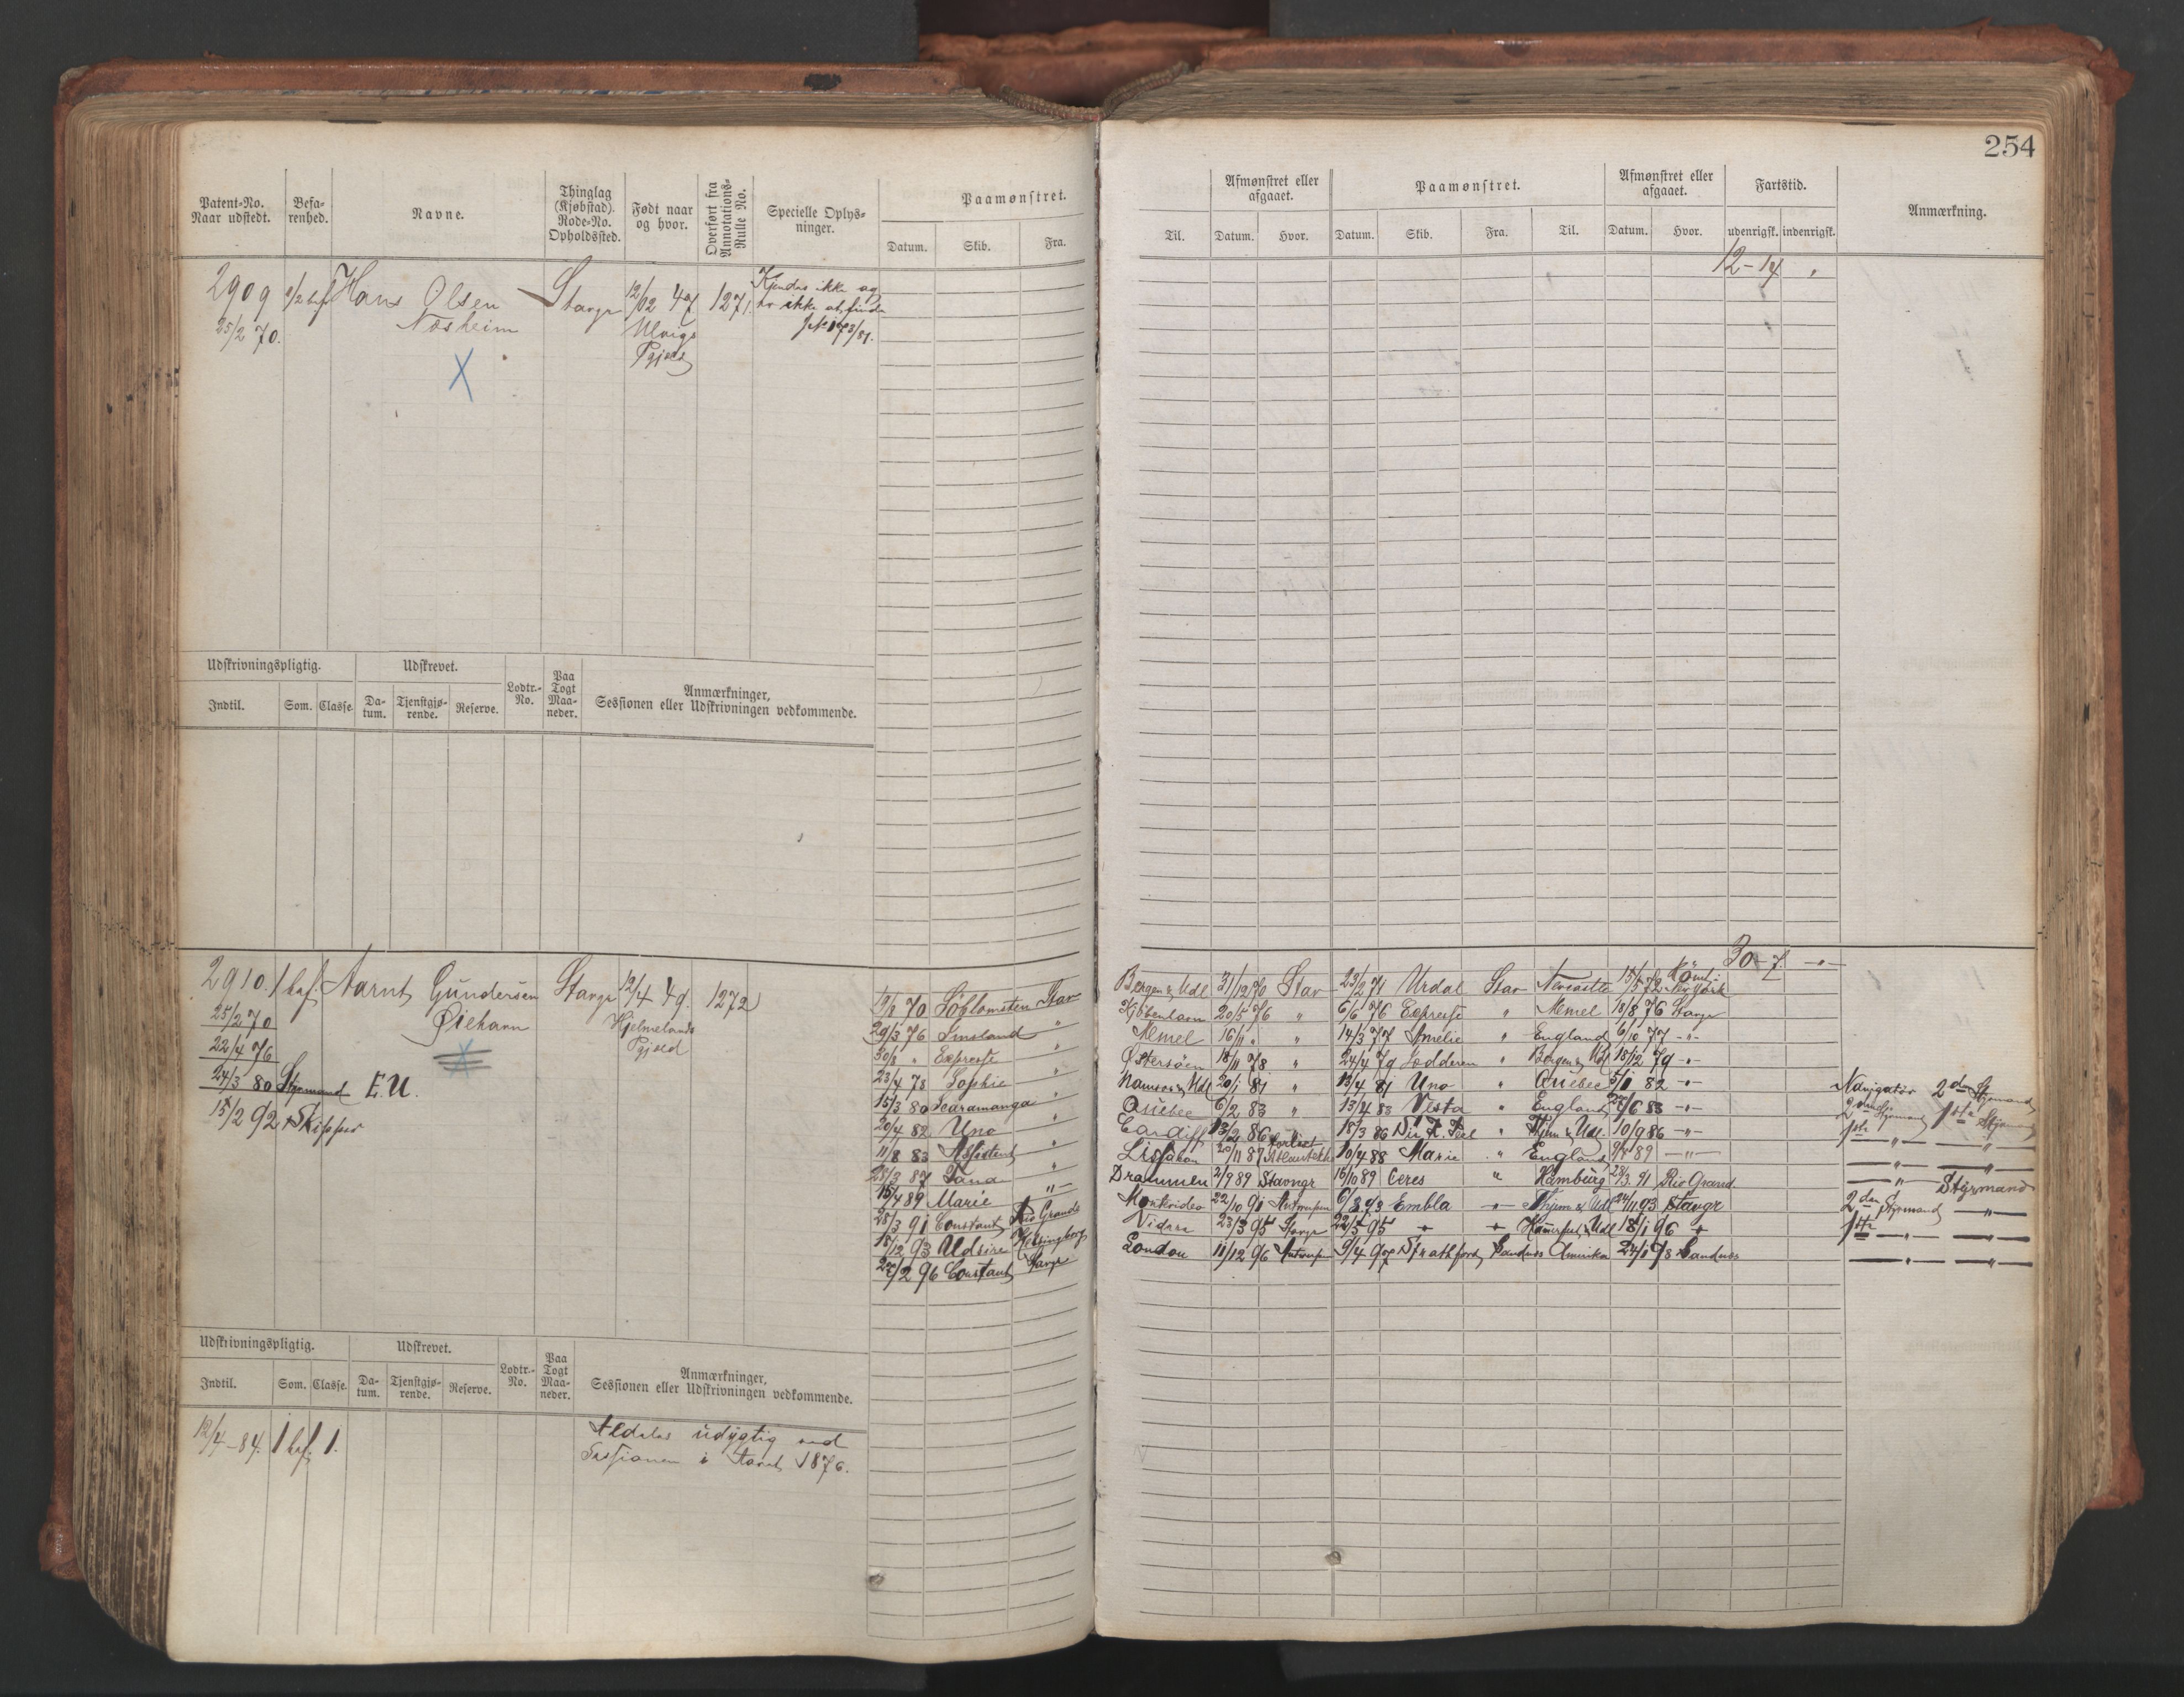 254
Patent-No. Naar udstedt.
Befarenhed.
Navne.
Thinglag (Kjøbstad). Rode-No. Opholdssted.
Født naar og hvor.
Overført fra Annotations-Rulle No.
Specielle Oplysninger.
Paamønstret.
Datum. Skib. Fra.
Til.
Afmønstret eller afgaaet.
Datum. Hvor.
Paamønstret.
Datum. Skib. Fra. Til.
Afmønstret eller afgaaet.
Datum. Hvor.
Fartstid.
udenrigsk. indenrigsk.
Anmærkning.
2909 1/2 bef Hans Olsen Stavgr 12/12 47 1271. Kjendes ikke og
25/2 70. Næsheim Ulvigs er ikke at finde
Pgjeld
X
12-14 "
Udskrivningspligtig. Udskrevet. Lodtr.-No. Paa Togt Maaneder. Anmærkninger, Sessionen eller Udskrivningen vedkommende.
Indtil. Som. Classe. Datum. Tjenstgjørende. Reserve.
2910. 1 bef. Aarnt Gundersen Stavgr 12/4 49. 1272
25/2 70 Øiehavn Hjelmelands
22/4 76 Pgjeld
24/3 80 Styrmand E.U.
15/2 92 Skipper
30-7. -"-
19/8 70 Søblomsten Stav Bergen & Udl 31/12 70 Stav 23/2 71 Urdal Stav Newcastle 15/5 72 Rømt i New York
29/3 76 Imsland " Kjøbenhavn 20/5 76 " 6/6 76 Expresse " Memel 18/8 76 Stavgr
30/8 " Expresse " Memel 16/11 " " 14/3 77 Amelie " England 6/10 77 -"-
23/4 78 Sophie " Østersøen 18/11 78 " 24/4 79 Lodderen " Bergen & Udl 18/12 79 -"-
15/3 80 Scaramanga " Namsos & Udl 20/1 81 " 13/4 81 Uno " Quebec 5/1 82 -"- Navigatør 2den Styrmand
20/4 82 Uno " Quebec 6/2 83 " 13/4 83 Vesta " England 20/6 83 -"- 2den Styrmand 1ste Styrmand
11/8 83 Assistent " Cardiff 13/2 86 Forlist 18/3 86 Sir R. Peel " Thjem & Udl. 10/9 86 -"- 1ste -"- -"-
28/3 87 Tana " Lissabon 20/11 87 10/4 88 Marie " England 9/4 89 -"- -"- -"-
15/4 89 Marie -"- Drammen 2/9 89 Stavngr 16/10 89 Ceres " Hamburg 28/3 91 Rio Grand. -"- Styrmand
28/3 91 Constant Rio Grande Montevideo 22/10 91 Antwerpen 6/3 93 Embla -"- Thjem & Udl 24/11 93 Stavgr 2den Styrmand -"-
18/12 93 Aldsire Helsingborg 23/3 95 Stavgr 22/5 95 -"- -"- Hammerfest & Udl 18/1 96 -"- 1ste -"- -"-
22/2 96 Constant Stavgr London 11/12 96 Antwerpen 9/4 97 Strathford Sandnes Amerika 24/1 98 Sandnes -"- -"-
Udskrivningspligtig. Udskrevet. Lodtr.-No. Paa Togt Maaneder. Anmærkninger, Sessionen eller Udskrivningen vedkommende.
Indtil. Som. Classe. Datum. Tjenstgjørende. Reserve.
12/4-84. 1 bef. 1. udygtig ved
Sessionen i Aaret 1876.